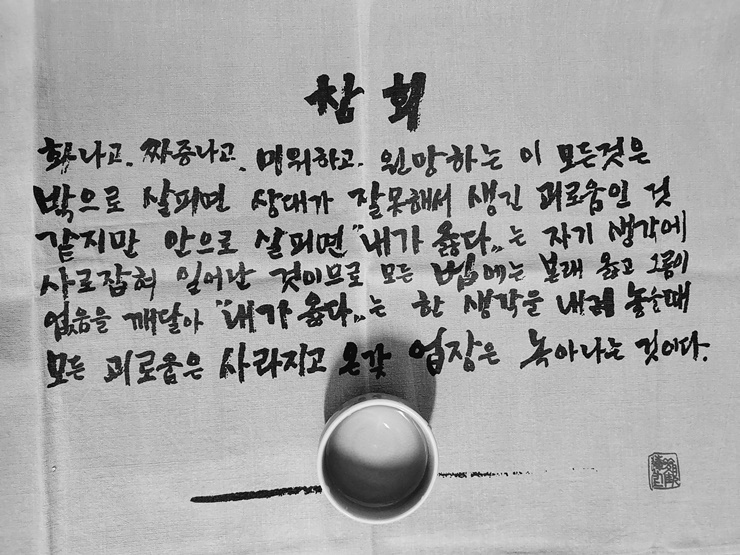 참회
화나고, 짜증나고, 미워하고, 원망하는 이 모든것은
밖으로 살피면 상대가 잘못해서 생긴 괴로움인 것
같지만 안으로 살피면 "내가 옳다"는 자기 생각에
사로잡혀 일어난 것이므로 모든 법에는 본래 옳고 그름이
없음을 깨달아 "내가 옳다"는 한 생각을 내려 놓을때
모든 괴로움은 사라지고 온갖 업장은 녹아나는 것이다.